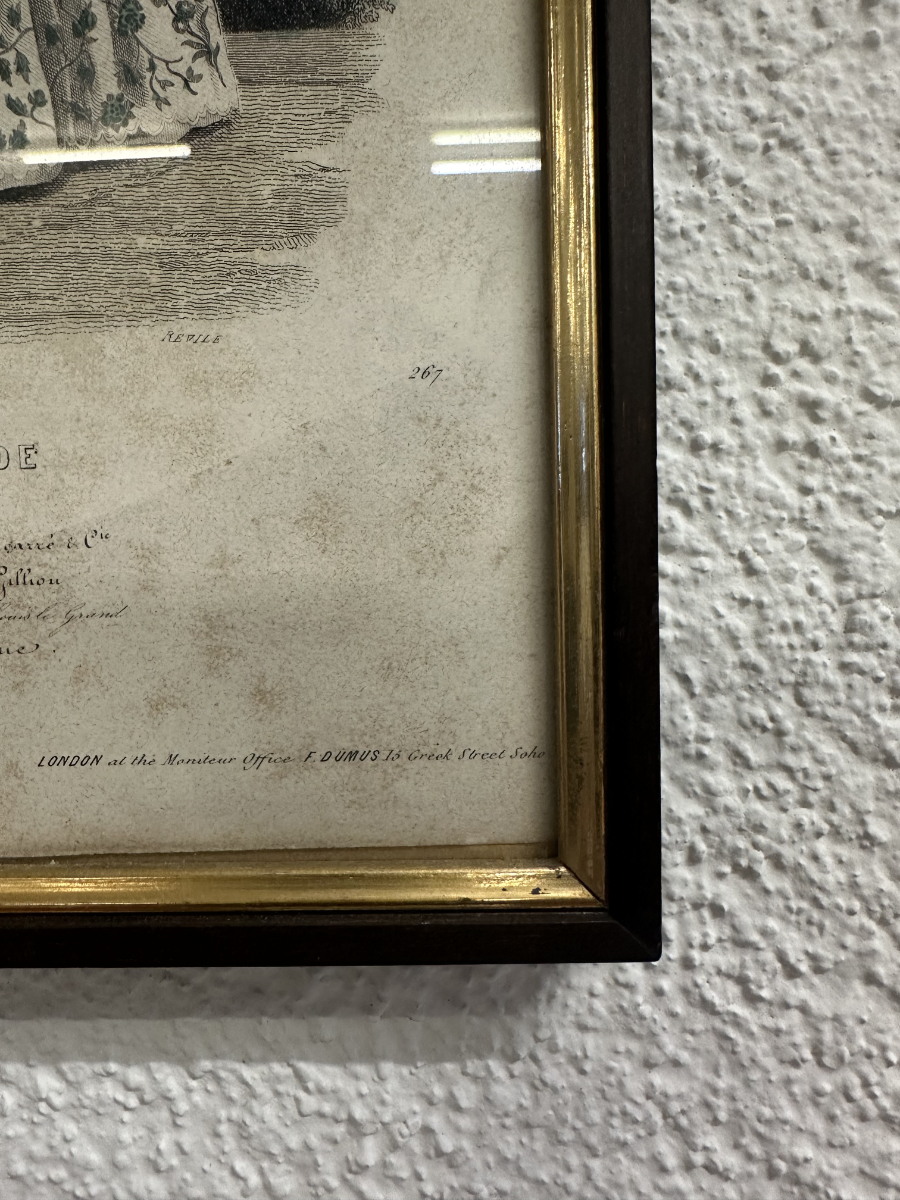 REVILE
267
DE
& Cie
Gillion
Louis le Grand
LONDON at the Moniteur Office F. DUMUS 15 Greek Street Soho